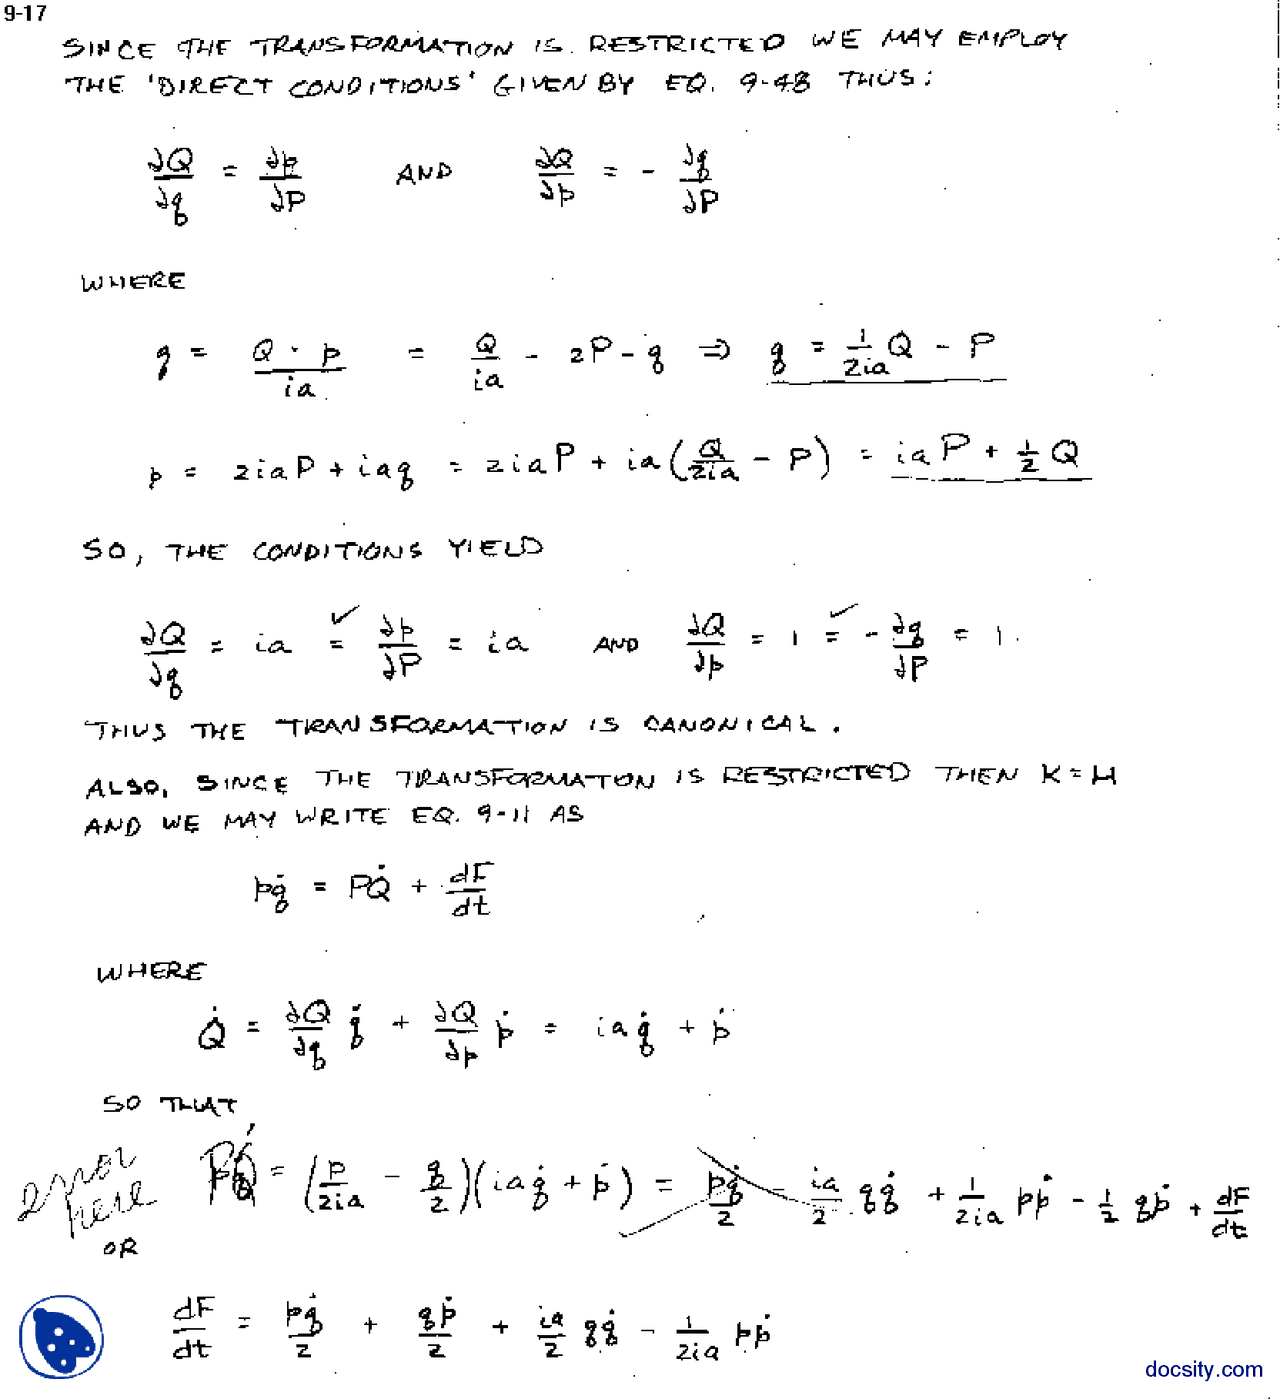 9-17
SINCE THE TRANSFORMATION IS RESTRICTED WE MAY EMPLOY
THE 'DIRECT CONDITIONS' GIVEN BY EQ. 9-48 THUS:
∂Q/∂q = ∂p/∂P AND ∂Q/∂p = - ∂q/∂P
WHERE
q = (Q - p)/ia = Q/ia - 2P - q ⇒ q = 1/2ia Q - P
p = 2iaP + iaq = 2iaP + ia(Q/2ia - P) = iaP + 1/2 Q
SO, THE CONDITIONS YIELD
∂Q/∂q = ia =✓ ∂p/∂P = ia AND ∂Q/∂p = 1 =✓ - ∂q/∂P = 1.
THUS THE TRANSFORMATION IS CANONICAL.
ALSO, SINCE THE TRANSFORMATON IS RESTRICTED THEN K = H
AND WE MAY WRITE EQ. 9-11 AS
pq̇ = PQ̇ + dF/dt
WHERE
Q̇ = ∂Q/∂q q̇ + ∂Q/∂p ṗ = iaq̇ + ṗ
SO THAT
error here PQ̇ = (p/2ia - q/2)(iaq̇ + ṗ) = pq̇/2 - ia/2 qq̇ + 1/2ia pṗ - 1/2 qṗ + dF/dt
OR
dF/dt = pq̇/2 + qṗ/2 + ia/2 qq̇ - 1/2ia pṗ
docsity.com